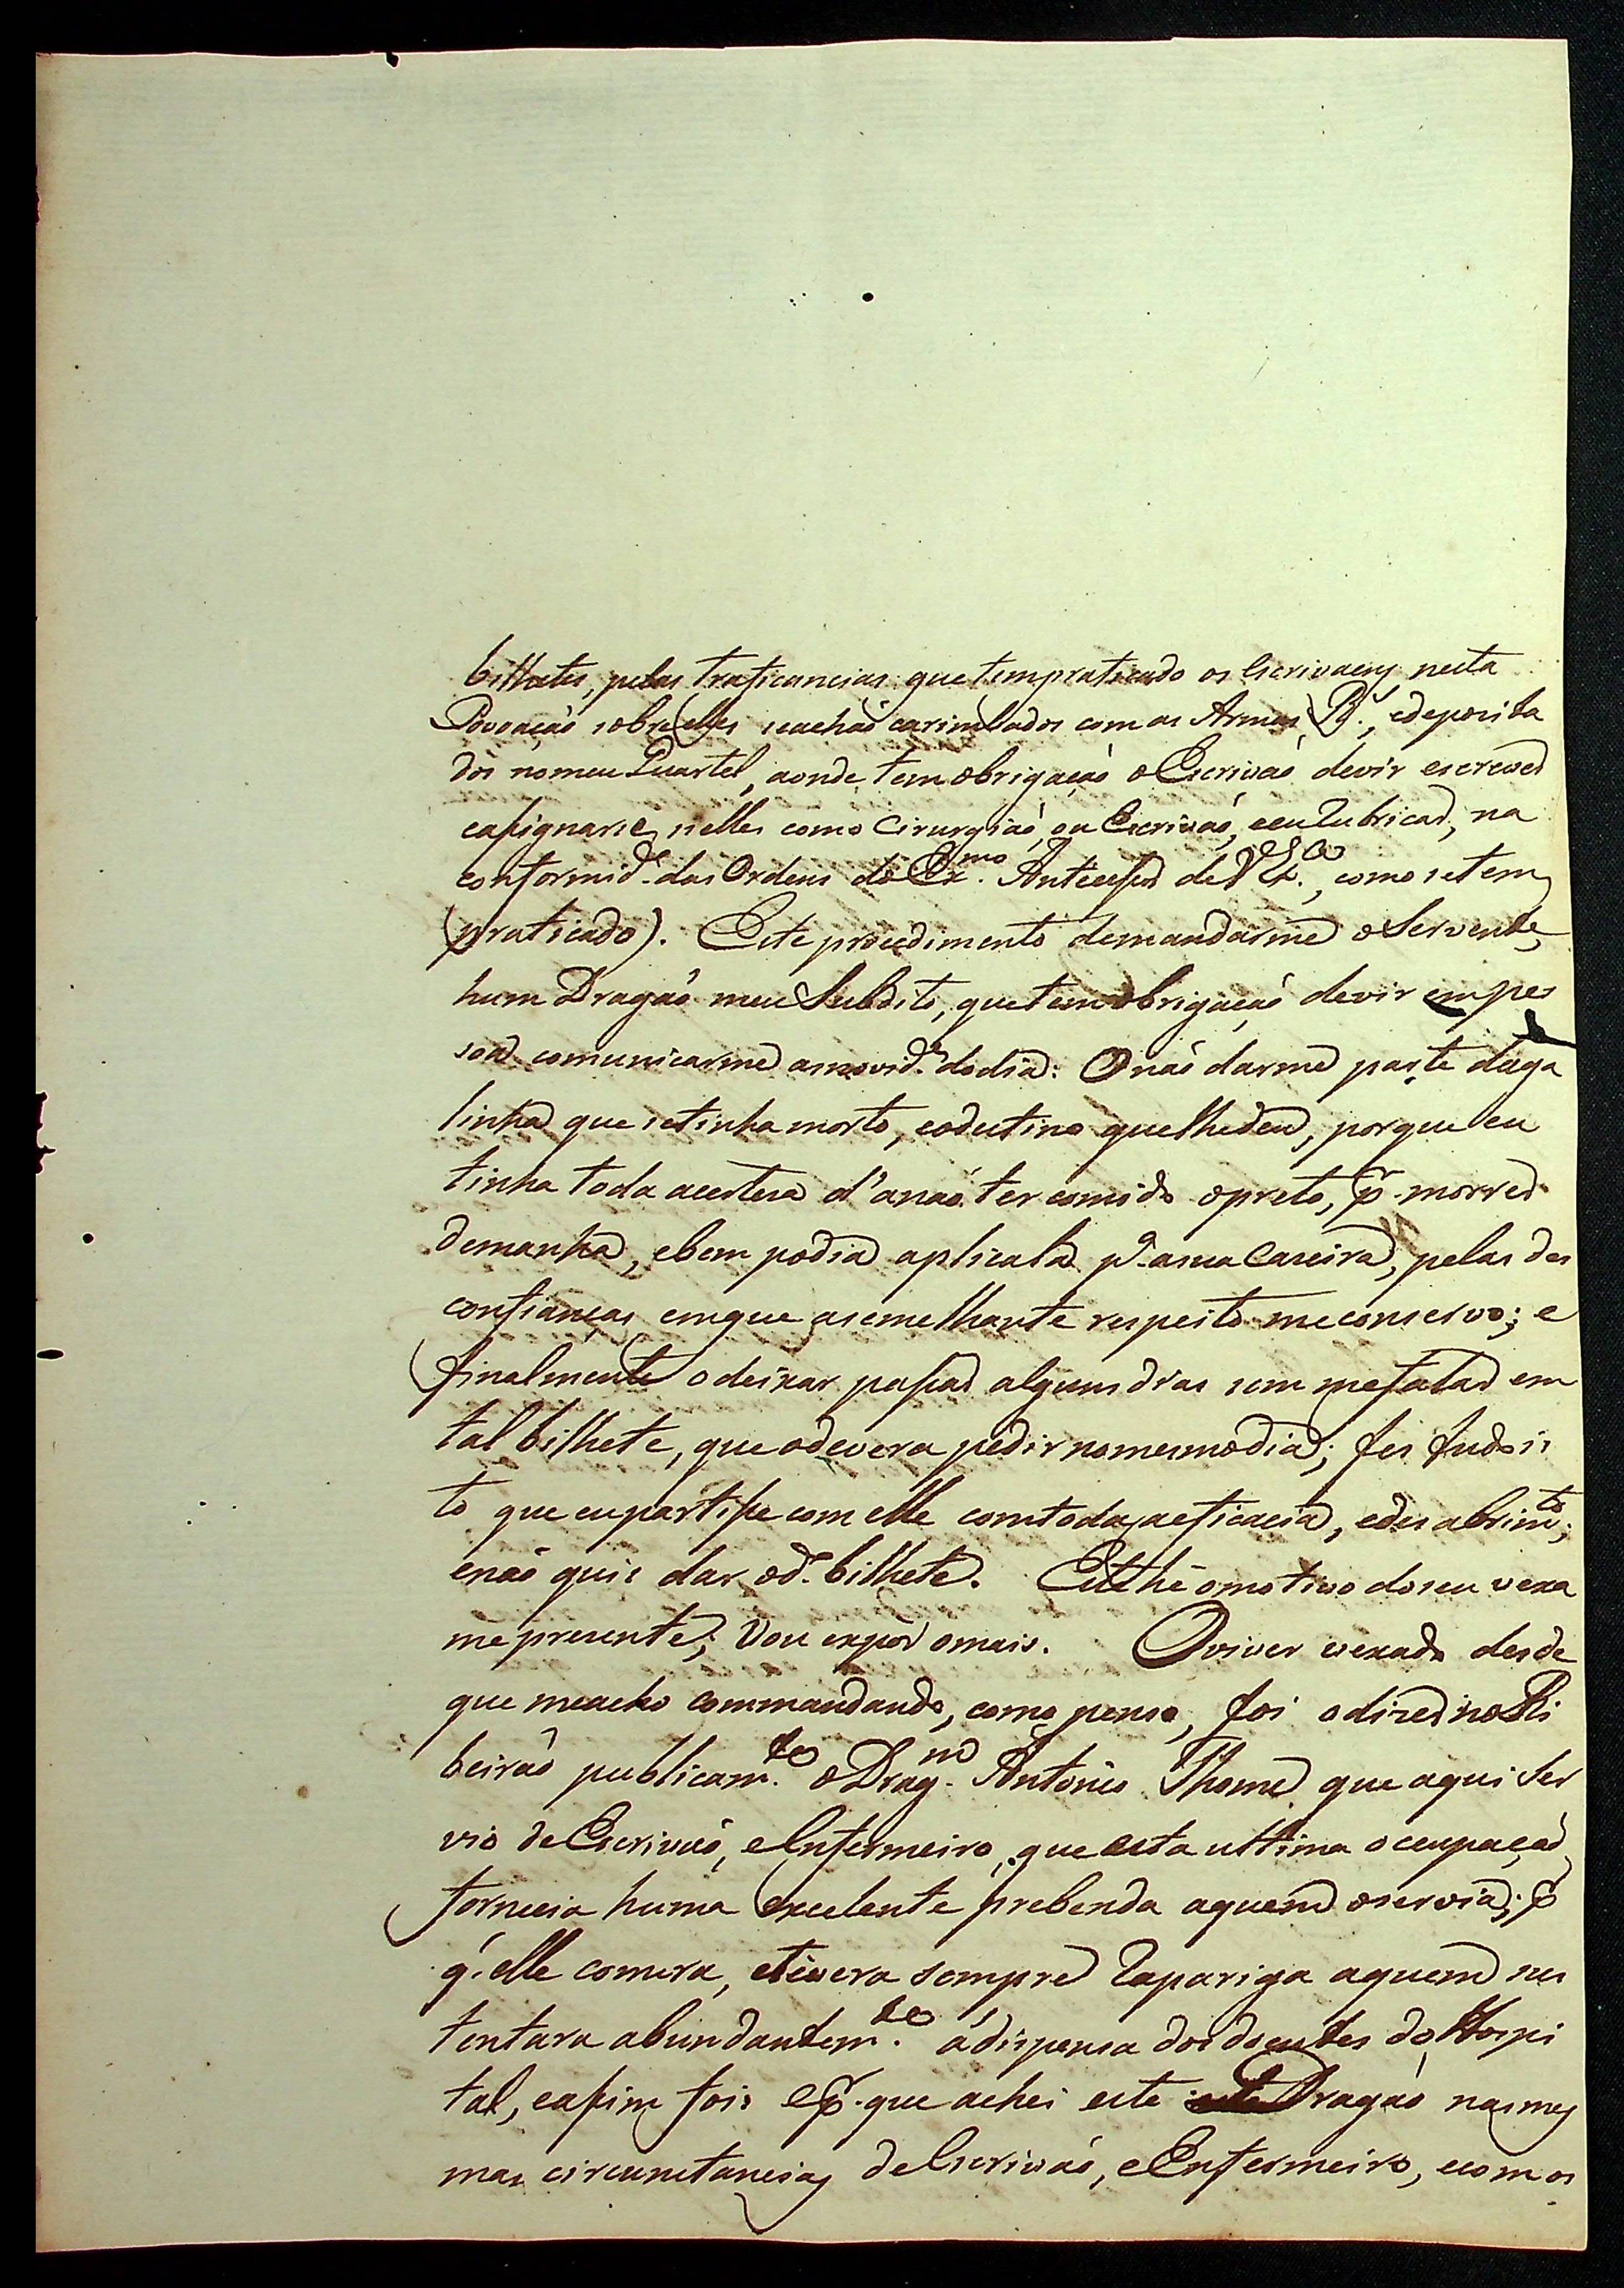 bilhetes, pelas traficancias que tem praticado os Escrivaens nesta
Povoação sobre elles se achão carimbados com as Armas R.s, e deposita
dos no meu Quartel, aonde tem obrigação o Escrivão de vir escrever
e asignarse nelles como Cirurgião, ou Escrivão, e eu Rubricar, na
conformid.e das Ordens do Ex.mo Antecesor de V. Ex.ca, como se tem
praticado). Este procedimento de mandarme o Servente,
hum Dragão meu Subdito, que tem obrigação de vir em pes
soa comunicarme as novid.es do dia: O não darme parte da ga
linha que se tinha morto, e o destino que lhe deu, porque eu
tinha toda a certeza d'a não ter comido o preto, p.r morrer
de manhã, e bem podia aplicala p.a a sua Caseira, pelas des
confianças em que a semelhante respeito me conservo; e
finalmente o deixar pasar alguns dias sem me falar em
tal bilhete, que o devera pedir no mesmo dia; fes tudo is
to que eu partise com elle com toda a eficacia, e desabrim.to;
e não quis dar o d.o bilhete. Este hé o motivo do seu vexa
me presente; Vou expor o mais. O viver vexado desde
que me acho commandando, como pensa, foi o dizer no Ri
beirão publicam.te o Drag.m Antonio Thome que aqui Ser
vio de Escrivão, e Enfermeiro, que esta ultima ocupação
fornecia huma excelente prebenda a quem o servia; p.r
q.' elle comera, e tivera sempre Rapariga a quem sus
tentara abundantem.te á dispensa dos doentes do Hospi
tal, e asim foi: E p.r que achei este Dragão nas mes
mas circunstancias de Escrivão, e Enfermeiro, e com os